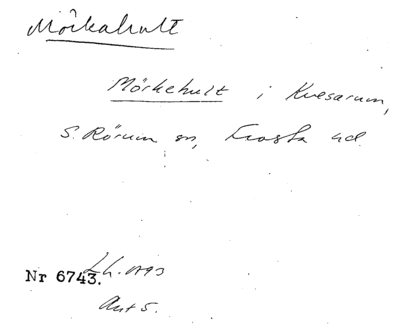 Mörkahult
Mörkehult i Kvesarum,
S. Rörum sn, Frosta hd.
Nr 6743.
Ant 5.